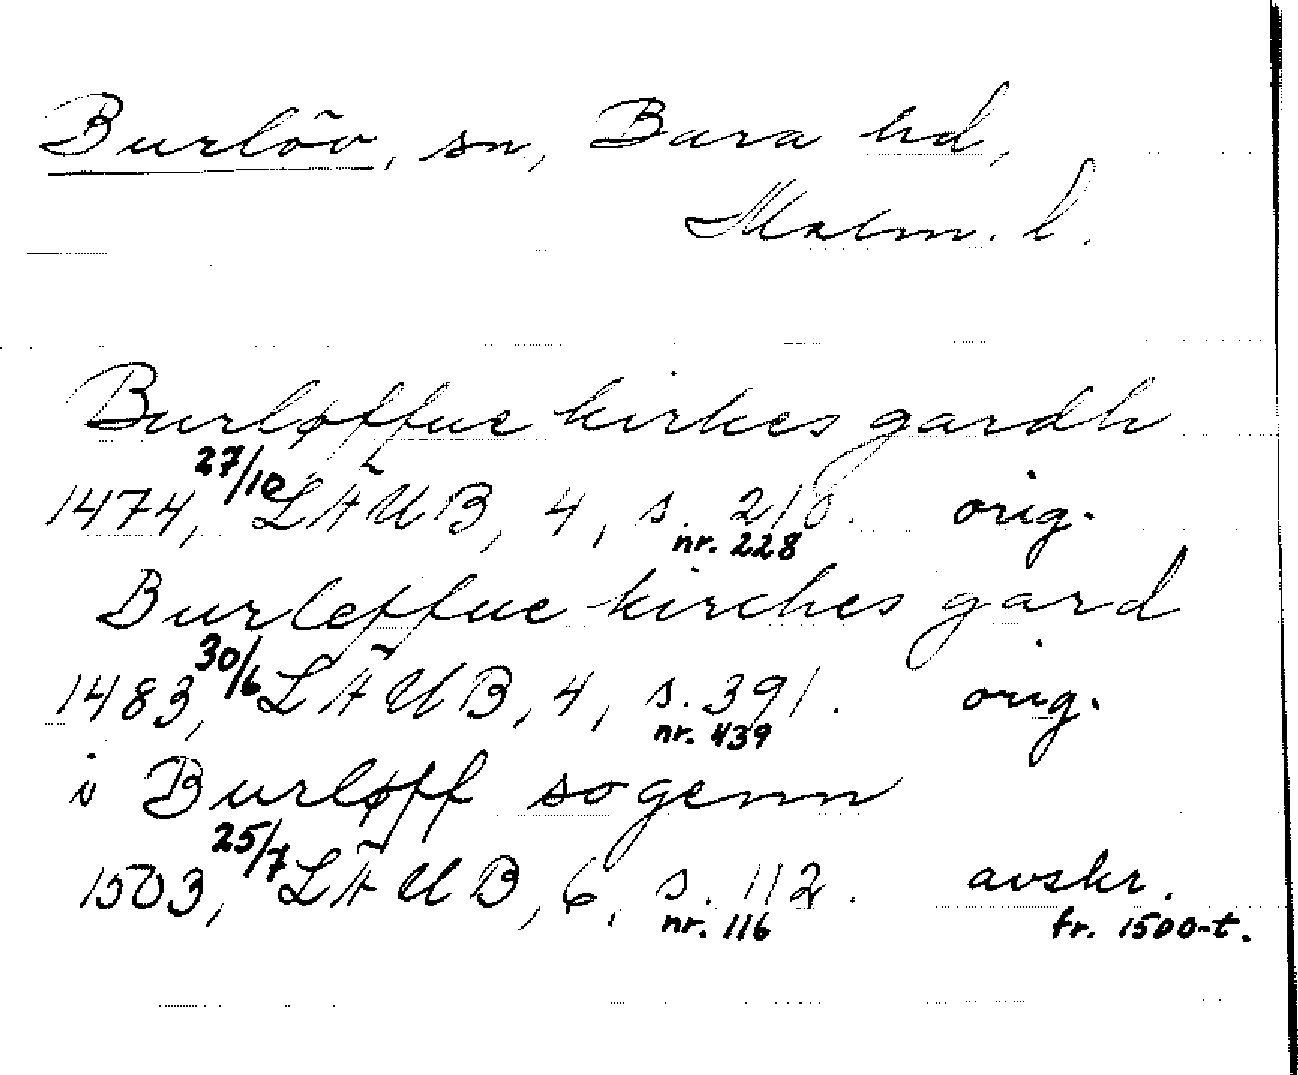 Burlöv, sn, Bara hd,
Malm. l.
Burløffue kirkes gardh
1474, 27/10 LÄUB, 4, s. 210. orig.
nr. 228
Burleffue kirches gard
1483, 30/6 LÄUB, 4, s. 391. orig.
nr. 439
i Burløff sogenn
1503, 25/7 LÄUB, 6, s. 112. avskr.
nr. 116 fr. 1500-t.